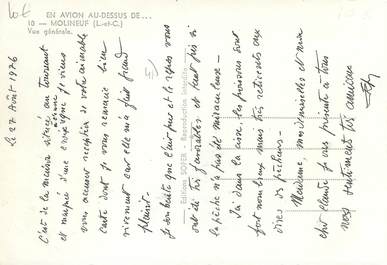 Lot
EN AVION AU-DESSUS DE...
10 — MOLINEUF (L.-et-C.)
Vue générale.
Editions SOFER - Reproduction interdite
le 27 Août 1976
C'est de la maison située au tournant
et marquée d'une croix que je viens
vous accuser réception de votre aimable
carte dont je vous remercie bien
vivement car elle m'a fait grand
plaisir.
Je souhaite que l'air pur et le repos vous
ont été très favorables et peut-être si
la pêche n'a pas été miraculeuse —
Ici dans la cisse, les poissons sont
fort nombreux mais très réticents aux
dires des pêcheurs —
Madame, mesdemoiselles et mon
cher Claude je vous présente à tous
nos sentiments très amicaux